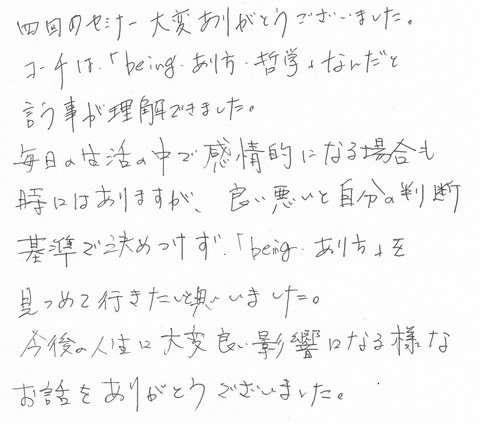 四回のセミナー大変ありがとうございました。
コーチは、「being・あり方・哲学」なんだと
言う事が理解できました。
毎日の生活の中で感情的になる場合も
時にはありますが、良い悪いと自分の判断
基準で決めつけず、「being・あり方」を
見つめて行きたいと思いました。
今後の人生に大変良い影響になる様な
お話をありがとうございました。